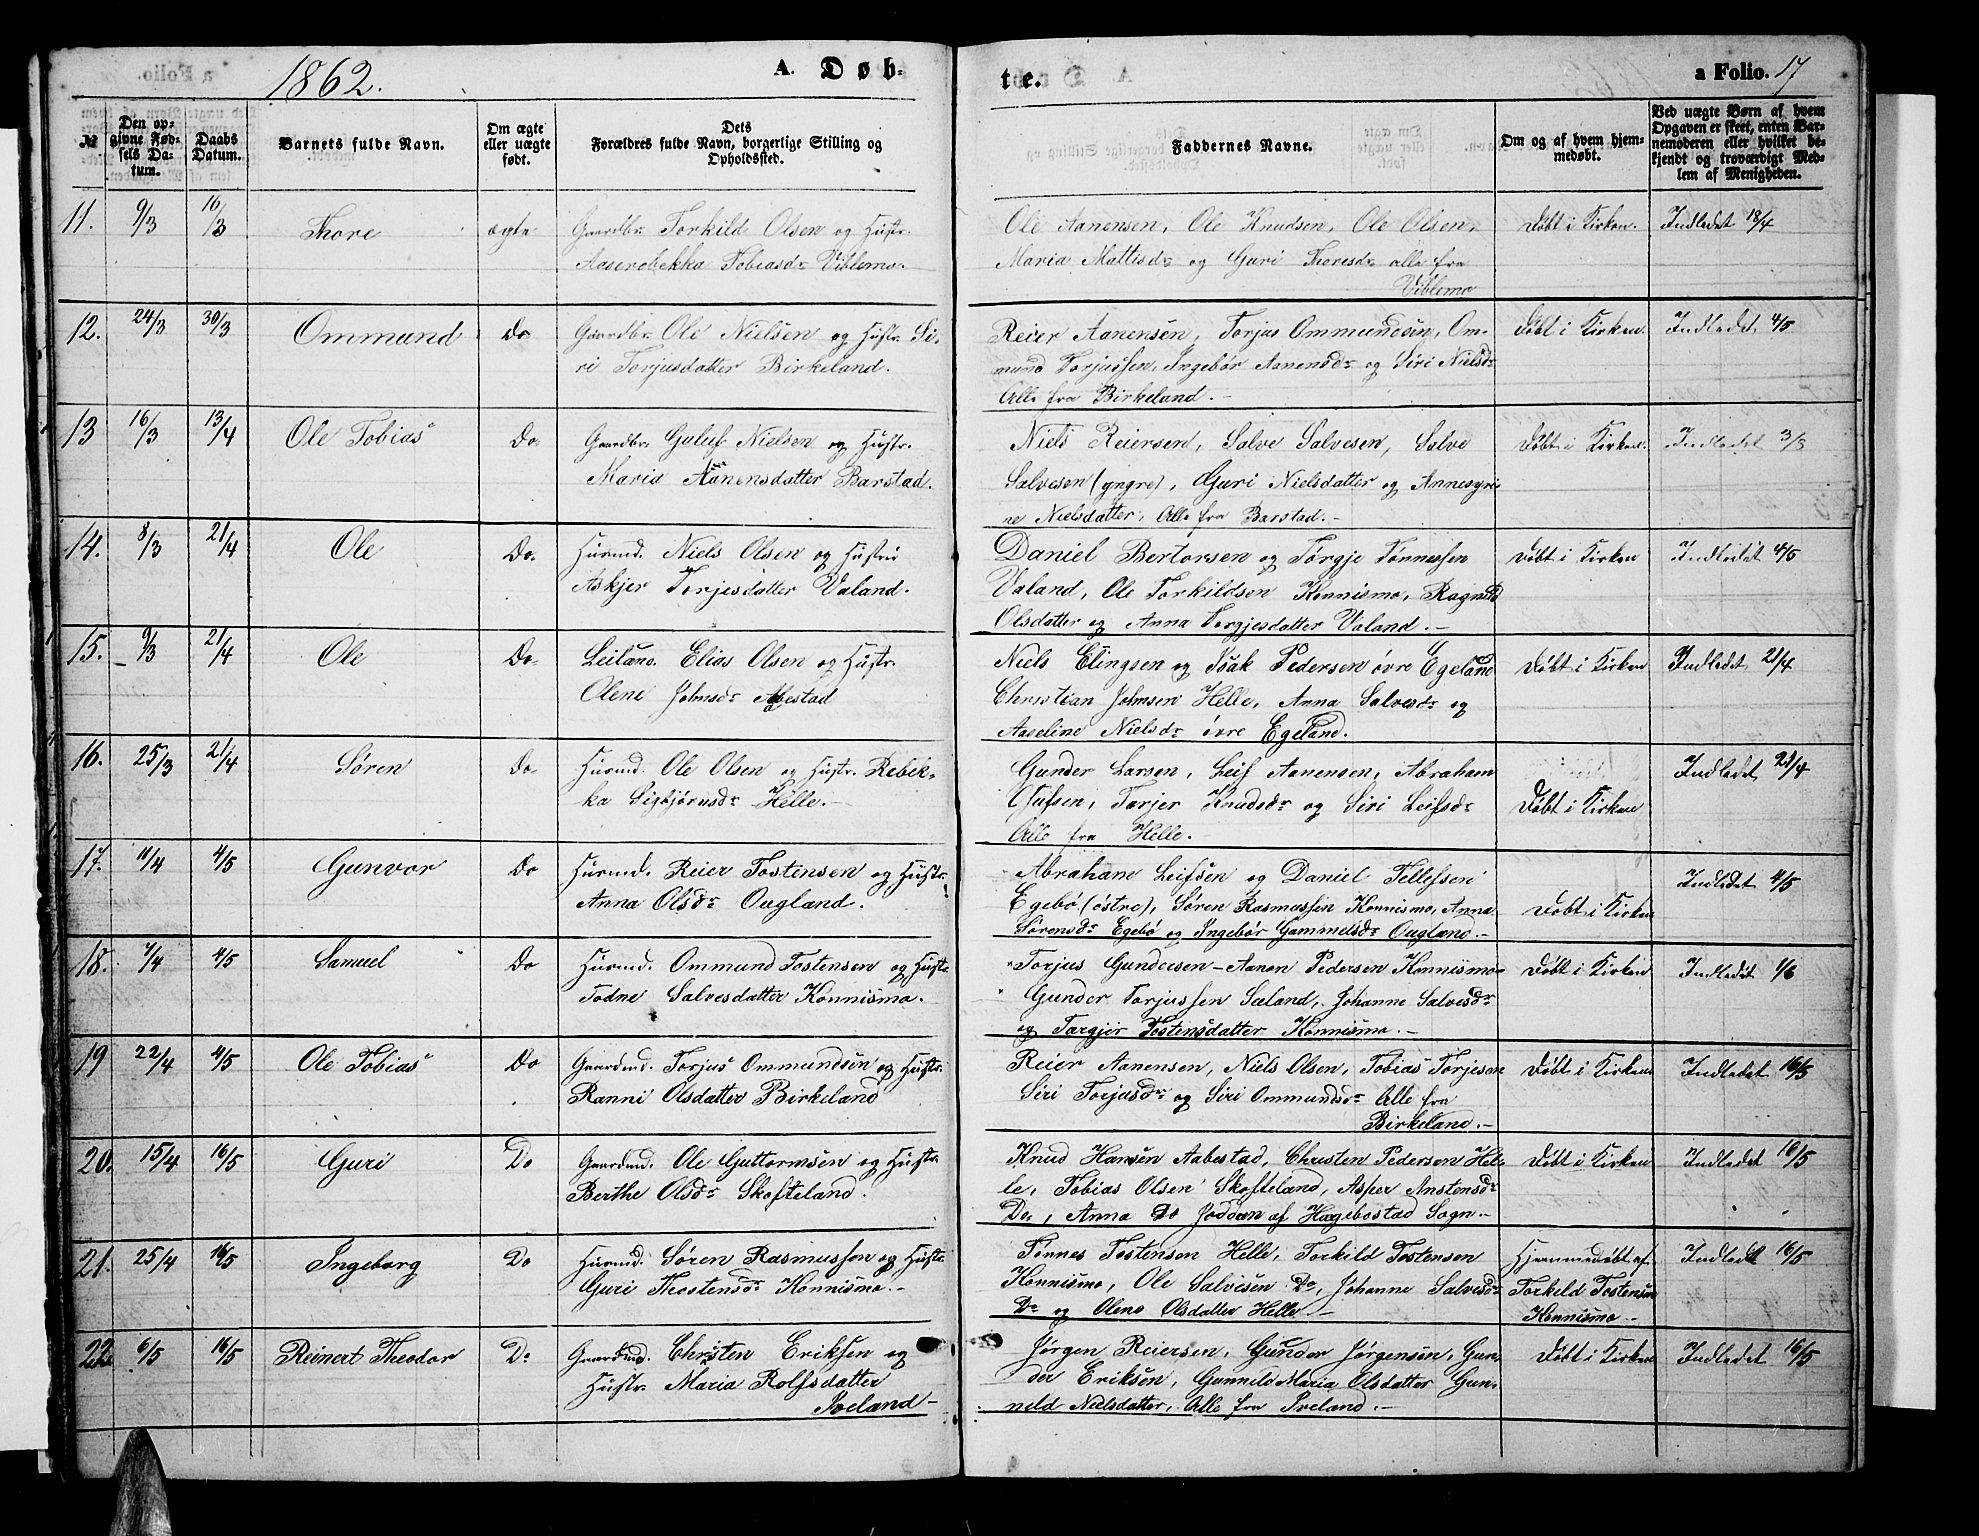 1862.
A. Døb-
te.
a Folio. 17
№
Den op-
givne Fød-
sels Da-
tum.
Daabs
Datum.
Barnets fulde Navn.
Om ægte
eller uægte
født.
Dets
Forældres fulde Navn, borgerlige Stilling og
Opholdssted.
Faddernes Navne.
Om og af hvem hjem-
medøbt.
Ved uægte Børn af hvem
Opgaven er skeet, enten Bar-
nemoderen eller hvilket be-
kjendt og troværdigt Med-
lem af Menigheden.
11. 9/3 16/3 Thore ægte Gaardbr. Torkild Olsen og Hustr.
Aaserebekka Tobiasdr Viblemo.
Ole Aanensen, Ole Knudsen, Ole Olsen,
Maria Mattisdr og Guri Thoresdr alle fra
Viblemo
Døbt i Kirken. Indledet 18/4
12. 24/3 30/3 Ommund Do Gaardbr. Ole Nielsen og Hustr. Si-
ri Torjusdatter Birkeland.
Reier Aanensen, Torjus Ommundsen, Om-
mund Torjussen, Ingebør Aanensdr og Siri Nielsdr
Alle fra Birkeland.-
Døbt i Kirken. Indledet 4/5
13 16/3 13/4 Ole Tobias Do. Gaardbr. Guluf Nielsen og Hustr.
Maria Aanensdatter Barstad.
Niels Reiersen, Salve Salvesen, Salve
Salvesen (yngre), Guri Nielsdatter og Annesyri-
ne Nielsdatter, Alle fra Barstad.-
Døbt i Kirken. Indledet 3/3
14. 8/3 21/4 Ole Do. Huusmd. Niels Olsen og Hustru
Askjer Torjesdatter Valand.
Daniel Bertorsen og Tørgje Tønnessen
Valand, Ole Torkildsen Konnismo, Ragnild
Olsdatter og Anna Torgjesdatter Valand.-
Døbt i Kirken Indledet 4/5
15. 9/3 21/4 Ole Do. Leilænd. Elias Olsen og Hustr.
Olene Johnsdr Abestad
Niels Elingsen og Isak Pedersen øvre Egeland
Christian Johnsen Helle, Anna Salvesdr og
Aaseline Nielsdr øvre Egeland.
Døbt i Kirken Indledet 21/4
16. 25/3 21/4 Søren Do. Huusmd. Ole Olsen og Hustr. Rebek-
ka Sigbjørnsdr Helle.-
Gunder Larsen, Leif Aanensen, Abraham
Olufsen, Torjer Knudsdr og Siri Leifsdr
Alle fra Helle.-
Døbt i Kirken Indledet 21/4
17. 11/4 4/5 Gunvor Do Huusmd. Reier Tostensen og Hustr.
Anna Olsdr Ougland.
Abraham Leifsen og Daniel Tellefsen
Egebø (østre), Søren Rasmussen Konnismo, Anna
Sørensdr Egebø og Ingebør Gammelsdr Ougland.-
Døbt i Kirken Indledet 4/5
18. 7/4 4/5 Samuel Do Huusmd. Ommund Tostensen og Hustr.
Todne Salvesdatter Konnismo.
Torjus Gundersen - Aanen Pedersen Konnismo-
Gunder Torjussen Sæland, Johanne Salvesdr
og Targjer Tostensdatter Konnismo.-
Døbt i Kirken Indledet 1/6
19 22/4 4/5 Ole Tobias Do Gaardmd. Torjus Ommundsen og Hustr.
Ranni Olsdatter Birkeland
Reier Aanensen, Niels Olsen, Tobias Torjesen
Siri Torjusdr og Siri Ommundsdr Alle fra
Birkeland.-
Døbt i Kirken Indledet 16/5
20. 15/4 16/5 Guri Do Gaardmd. Ole Guttormsen og Hustr.
Berthe Olsdr Skofteland.
Knud Hansen Aabestad, Christen Pedersen Hel-
le, Tobias Olsen Skofteland, Asper Anstensdr
Do., Anna Do Joddan af Hægebostad Sogn.-
Døbt i Kirken Indledet 16/5
21. 25/4 16/5 Ingeborg Do Huusmd. Søren Rasmussen og Hustr.
Guri Thostensdr Konnismo.-
Tønnes Tostensen Helle, Torkild Tostensen
Konnismo, Ole Salvesen Do, Johanne Salvesdr
Do og Olene Olsdatter Helle.-
Hjemmedøbt af
Torkild Tostensen
Konnismo.-
Indledt 16/5
22. 6/5 16/5 Reinert Theodor Do Gaardmd. Christen Eriksen og
Hustr. Maria Rolfsdatter
Iveland-
Jørgen Reiersen, Gunder Jørgensen, Gun-
der Eriksen, Gunnild Maria Olsdatter Gun-
nild Nielsdatter, Alle fra Iveland.-
Døbt i Kirken Indledet 16/5